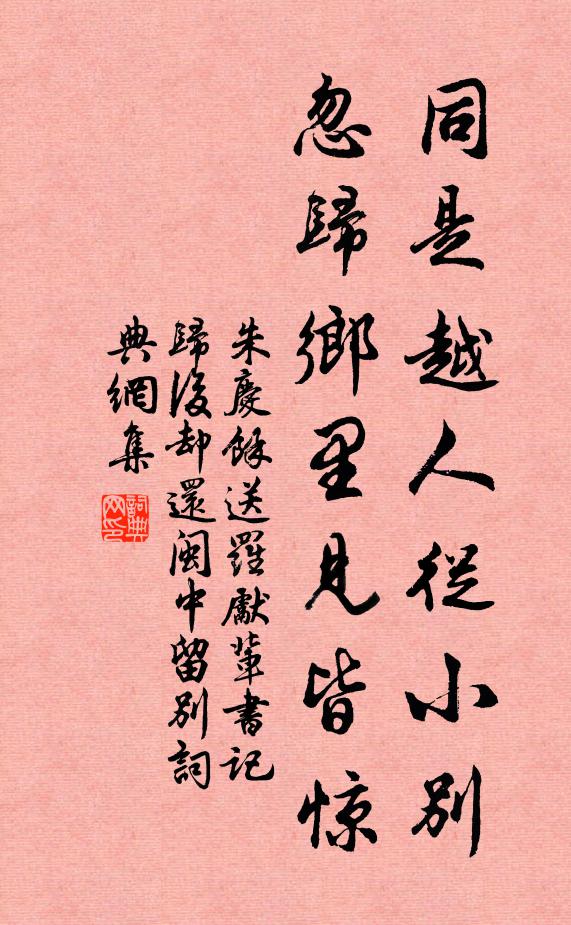 同是越人從小別
忽歸鄉里見皆惊
朱慶餘送羅獻輩書記
歸後却還閩中留別詞
典網集
詞典网印